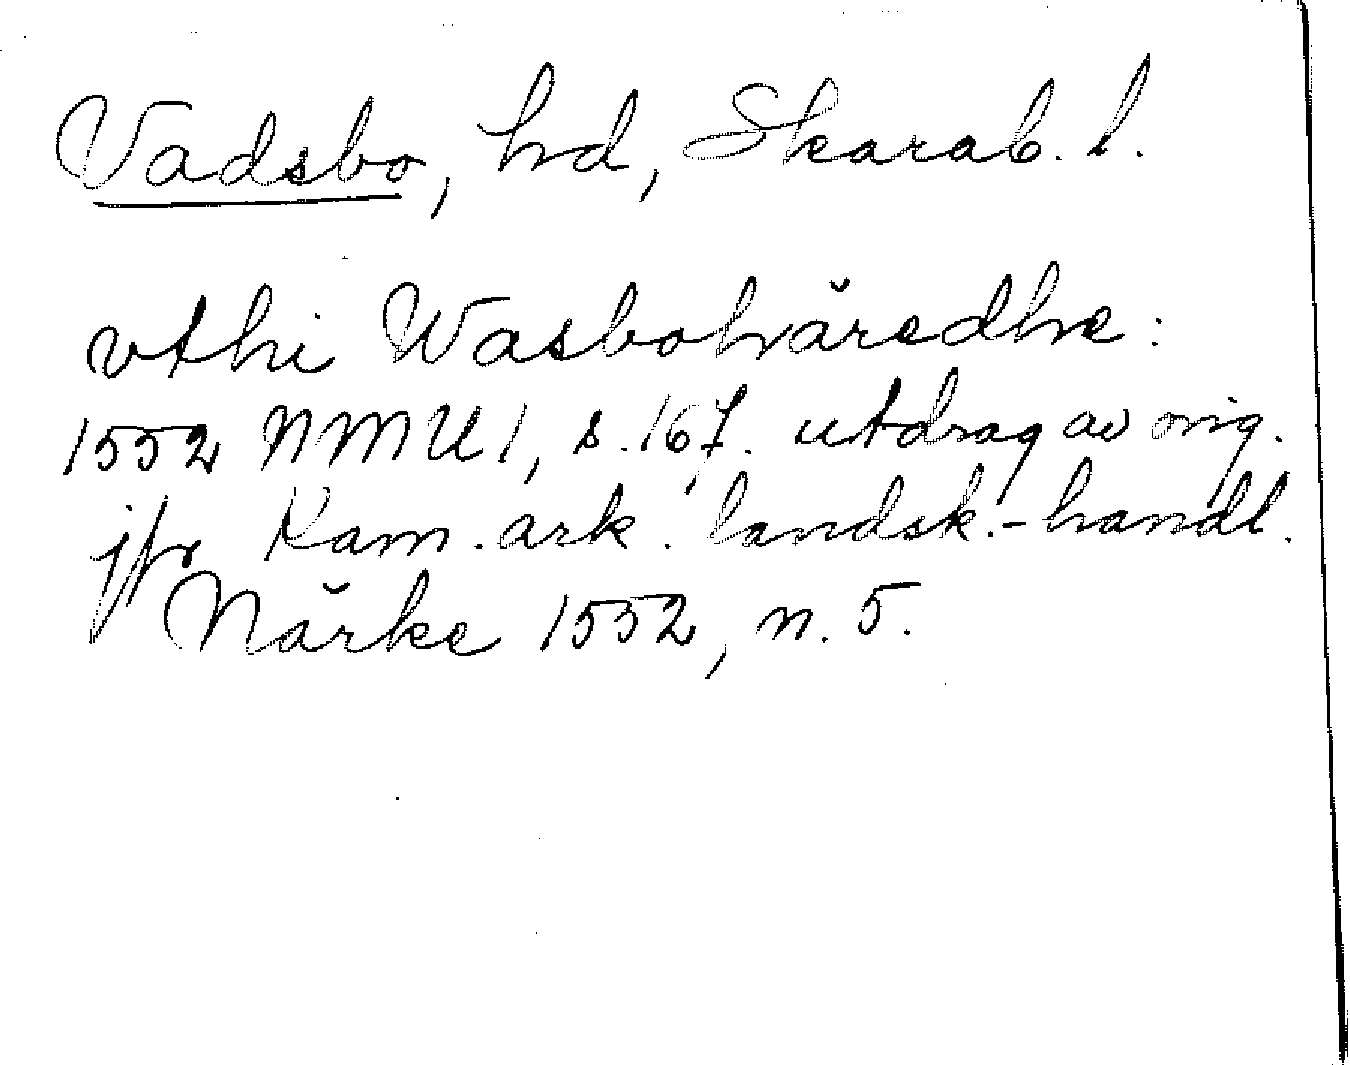 Vadsbo, hd, Skarab. l.
vthi Wasbohäredhe:
1552 NMU 1, s. 167. utdrag av orig.
jfr Kam. ark. landsk.-handl.
Närke 1552, n. 5.